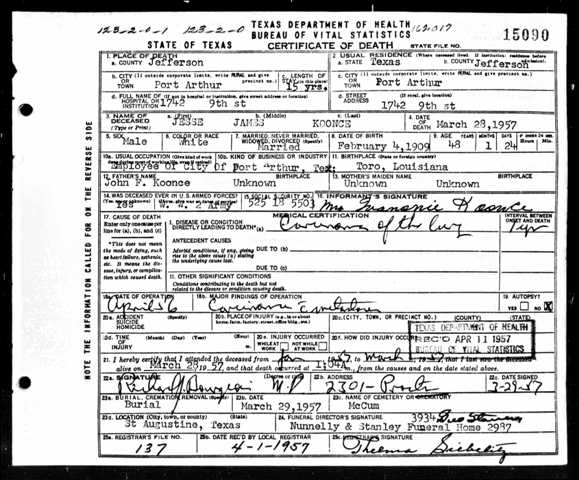 TEXAS DEPARTMENT OF HEALTH
BUREAU OF VITAL STATISTICS
STATE OF TEXAS CERTIFICATE OF DEATH STATE FILE NO. 15090
1. PLACE OF DEATH
a. COUNTY Jefferson
2. USUAL RESIDENCE
a. STATE Texas b. COUNTY Jefferson
Port Arthur
c. LENGTH OF STAY 15 yrs.
Port Arthur
d. FULL NAME OF HOSPITAL OR INSTITUTION 1742 9th st
d. STREET ADDRESS 1742 9th st
3. NAME OF DECEASED (Type or Print) a. (First) JESSE b. (Middle) JAMES c. (Last) KOONCE
4. DATE OF DEATH March 28, 1957
5. SEX Male
6. COLOR OR RACE White
7. MARRIED, NEVER MARRIED, WIDOWED, DIVORCED (Specify) Married
8. DATE OF BIRTH February 4, 1909
9. AGE YEARS 48 MONTHS 1 DAYS 24
10a. USUAL OCCUPATION Employee of City Of Port Arthur, Tex.
10b. KIND OF BUSINESS OR INDUSTRY
11. BIRTHPLACE (State or foreign country) Toro, Louisiana
12. FATHER'S NAME John F. Koonce BIRTHPLACE Unknown
13. MOTHER'S MAIDEN NAME Unknown BIRTHPLACE Unknown
14. WAS DECEASED EVER IN U.S. ARMED FORCES? Yes W. W. 2 Army
15. SOCIAL SECURITY NO. 525 18 5503
16. INFORMANT'S SIGNATURE Koonce
17. CAUSE OF DEATH
Enter only one cause per line for (a), (b), and (c)
MEDICAL CERTIFICATION
INTERVAL BETWEEN ONSET AND DEATH
I. DISEASE OR CONDITION DIRECTLY LEADING TO DEATH (a) Carcinoma of the lung 1 yr
*This does not mean the mode of dying, such as heart failure, asthenia, etc. It means the disease, injury, or complication which caused death.
ANTECEDENT CAUSES
Morbid conditions, if any, giving rise to the above cause (a) stating the underlying cause last.
DUE TO (b)
DUE TO (c)
II. OTHER SIGNIFICANT CONDITIONS
Conditions contributing to the death but not related to the disease or condition causing death.
18a. DATE OF OPERATION April 56
18b. MAJOR FINDINGS OF OPERATION Carcinoma
19. AUTOPSY? YES NO X
20a. ACCIDENT SUICIDE HOMICIDE
20b. PLACE OF INJURY
20c. (CITY, TOWN, OR PRECINCT NO.) (COUNTY) (STATE)
20d. TIME OF INJURY
20e. INJURY OCCURRED WHILE AT WORK NOT WHILE AT WORK
20f. HOW DID INJURY OCCUR?
TEXAS DEPARTMENT OF HEALTH
REC'D APR 11 1957
BUREAU OF VITAL STATISTICS
21. I hereby certify that I attended the deceased from Jan 1957 to March
alive on March 28 1957, and that death occurred at m., from the causes and on the date stated above.
22a. SIGNATURE M.D.
22b. ADDRESS 2301- Procter
22c. DATE SIGNED 3-29-57
23a. BURIAL, CREMATION, REMOVAL (Specify) Burial
23b. DATE March 29, 1957
23c. NAME OF CEMETERY OR CREMATORY McCum
23d. LOCATION (City, town, or county) (State) St Augustine, Texas
24. FUNERAL DIRECTOR'S SIGNATURE 3934
Nunnelly & Stanley Funeral Home 2987
25a. REGISTRAR'S FILE NO. 137
25b. DATE REC'D BY LOCAL REGISTRAR 4-1-1957
25c. REGISTRAR'S SIGNATURE Thelma
NOTE THE INFORMATION CALLED FOR ON THE REVERSE SIDE